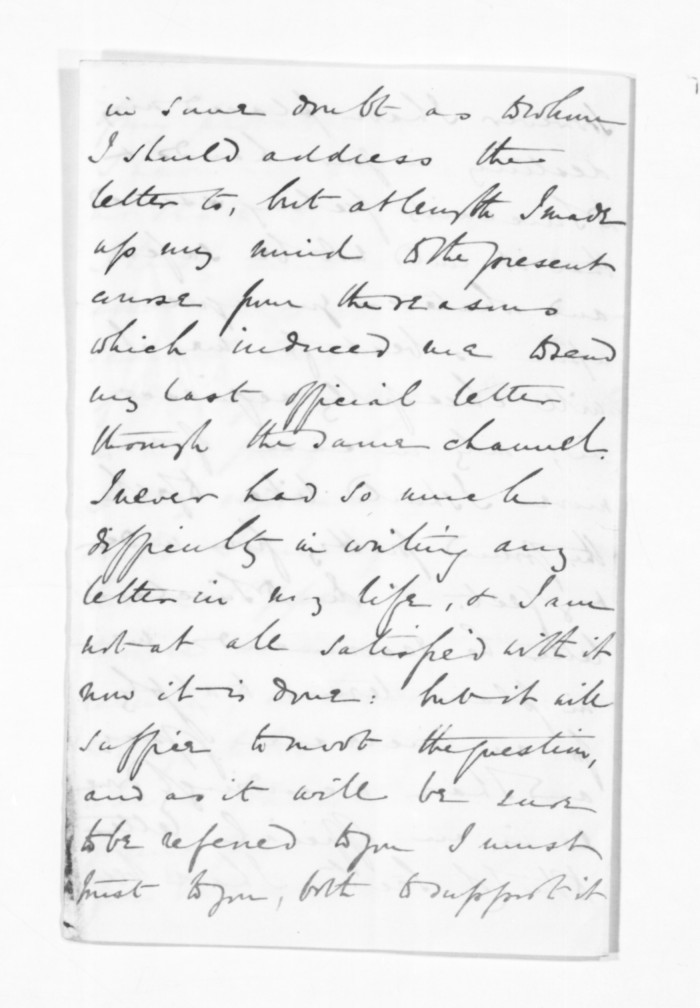 in some doubt as to whom
I should address the
letter to, but at length I made
up my mind to the present
course from the reasons
which induced me to send
my last official letter
through the same channel.
I never had so much
difficulty in writing any
letter in my life, & I am
not at all satisfied with it
now it is done: but it will
suffice to moot the question,
and as it will be sure
to be referred to you I must
trust to you, both to support it